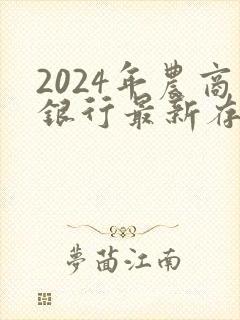 2024年農商
銀行最新存
夢茵江南